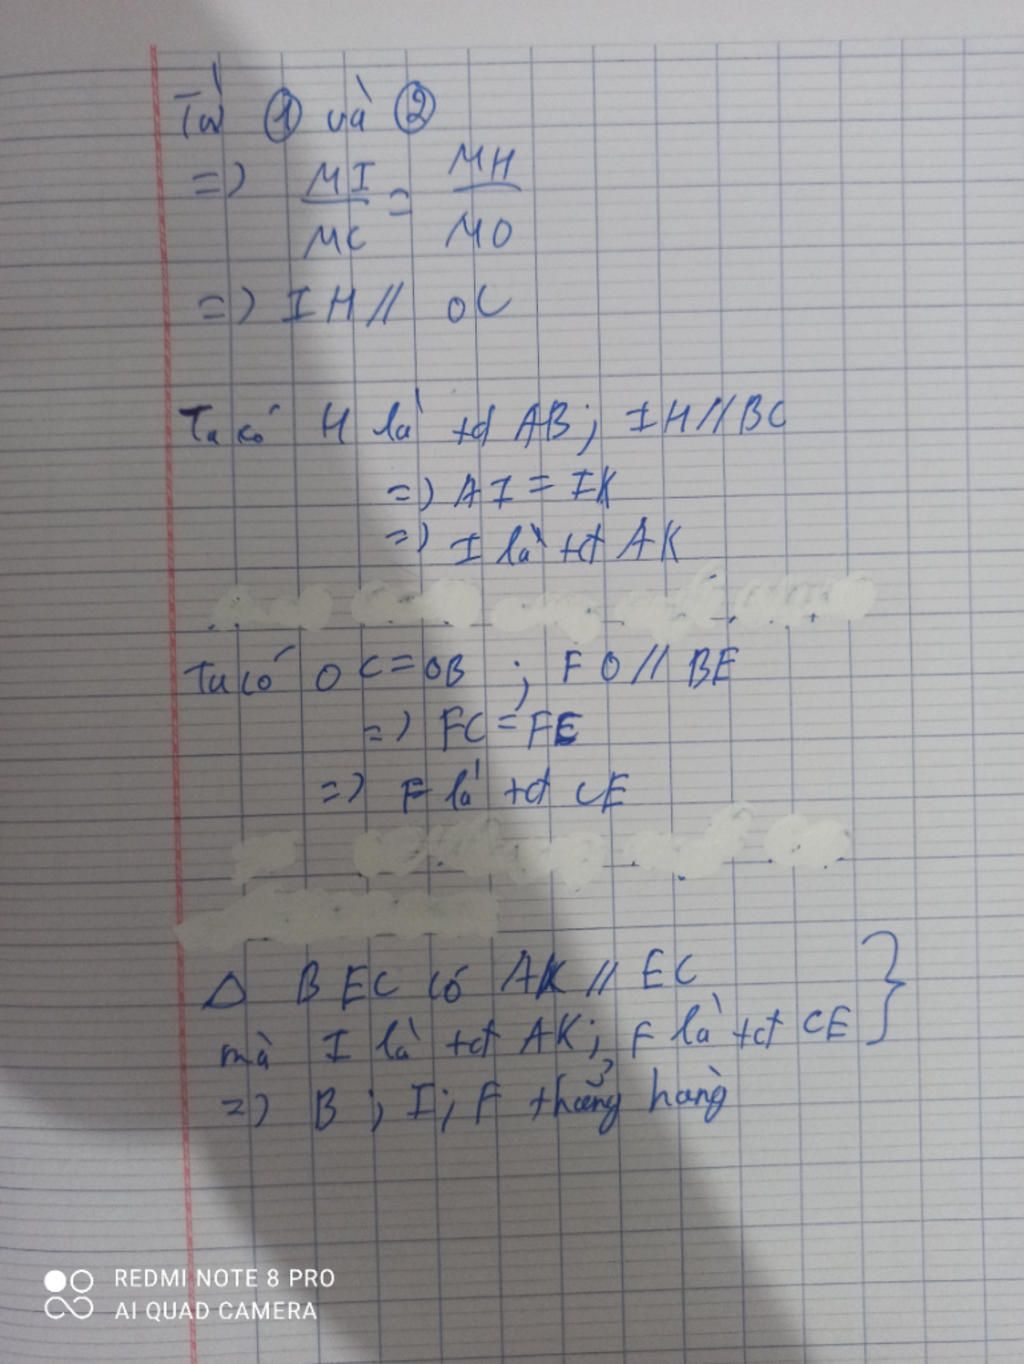 Từ ① và ②
=> MI/MC = MH/MO
=> IH // OC
Ta có H là tđ AB; IH // BC
=> AI = IK
=> I là tđ AK
Ta có OC = OB ; FO // BE
=> FC = FE
=> F là tđ CE
Δ BEC có AK // EC
mà I là tđ AK; F là tđ CE }
=> B ; I ; F thẳng hàng
REDMI NOTE 8 PRO
AI QUAD CAMERA